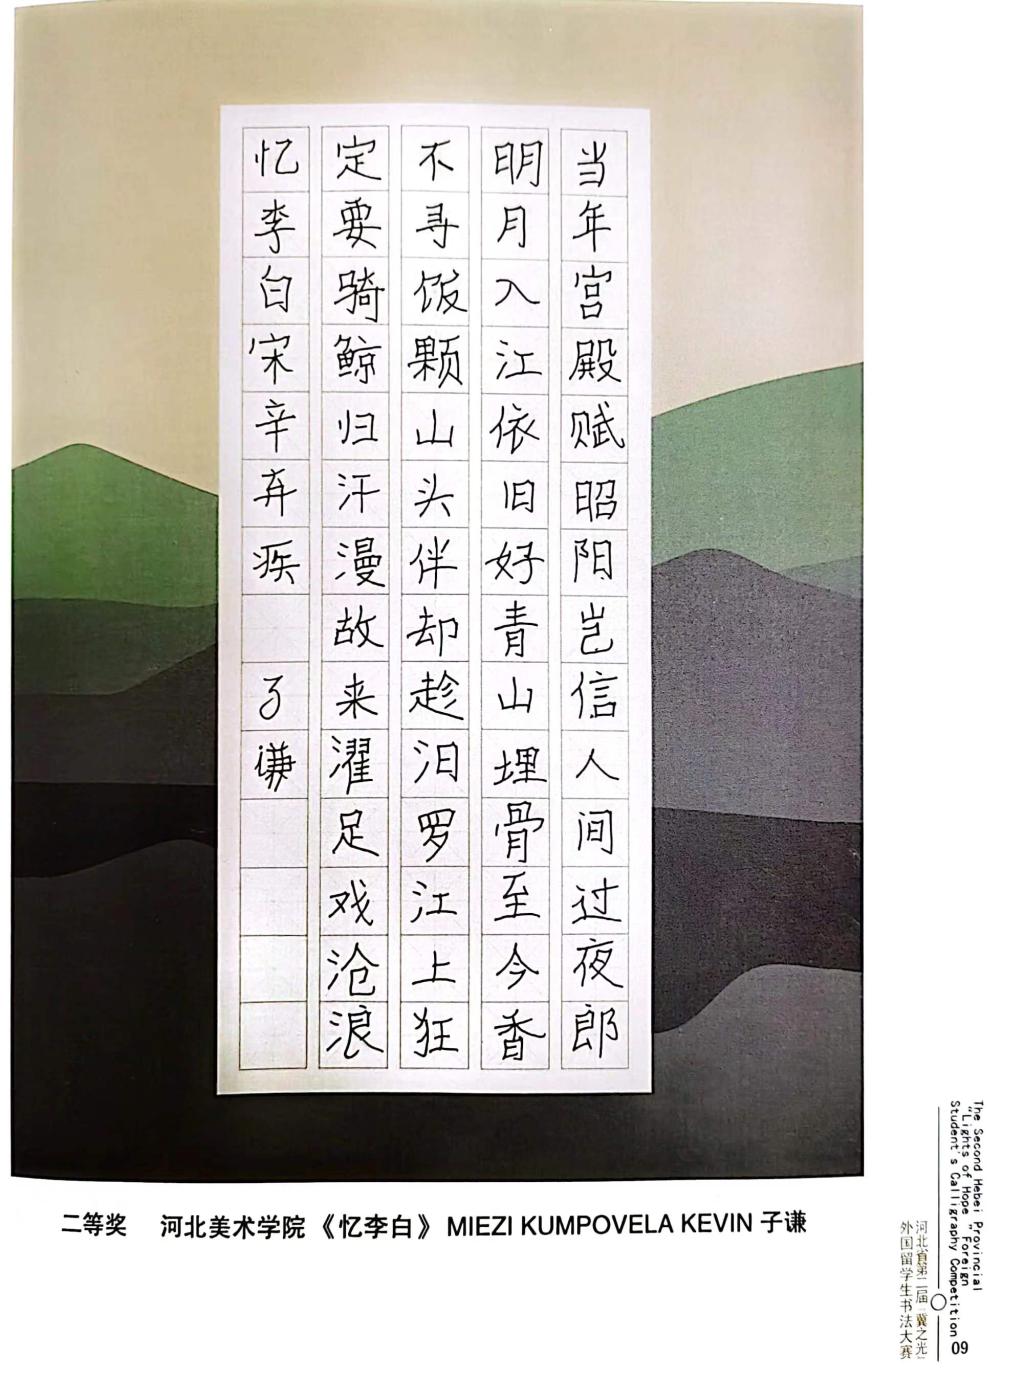 当年宫殿赋昭阳岂信人间过夜郎
明月入江依旧好青山埋骨至今香
不寻饭颗山头伴却趁汨罗江上狂
定要骑鲸归汗漫故来濯足戏沧浪
忆李白宋辛弃疾 子谦
二等奖 河北美术学院《忆李白》MIEZI KUMPOVELA KEVIN 子谦
The Second Hebei Provincial
"Lights of Hope" Foreign
Student's Calligraphy Competition
河北省第二届“冀之光”
外国留学生书法大赛
09